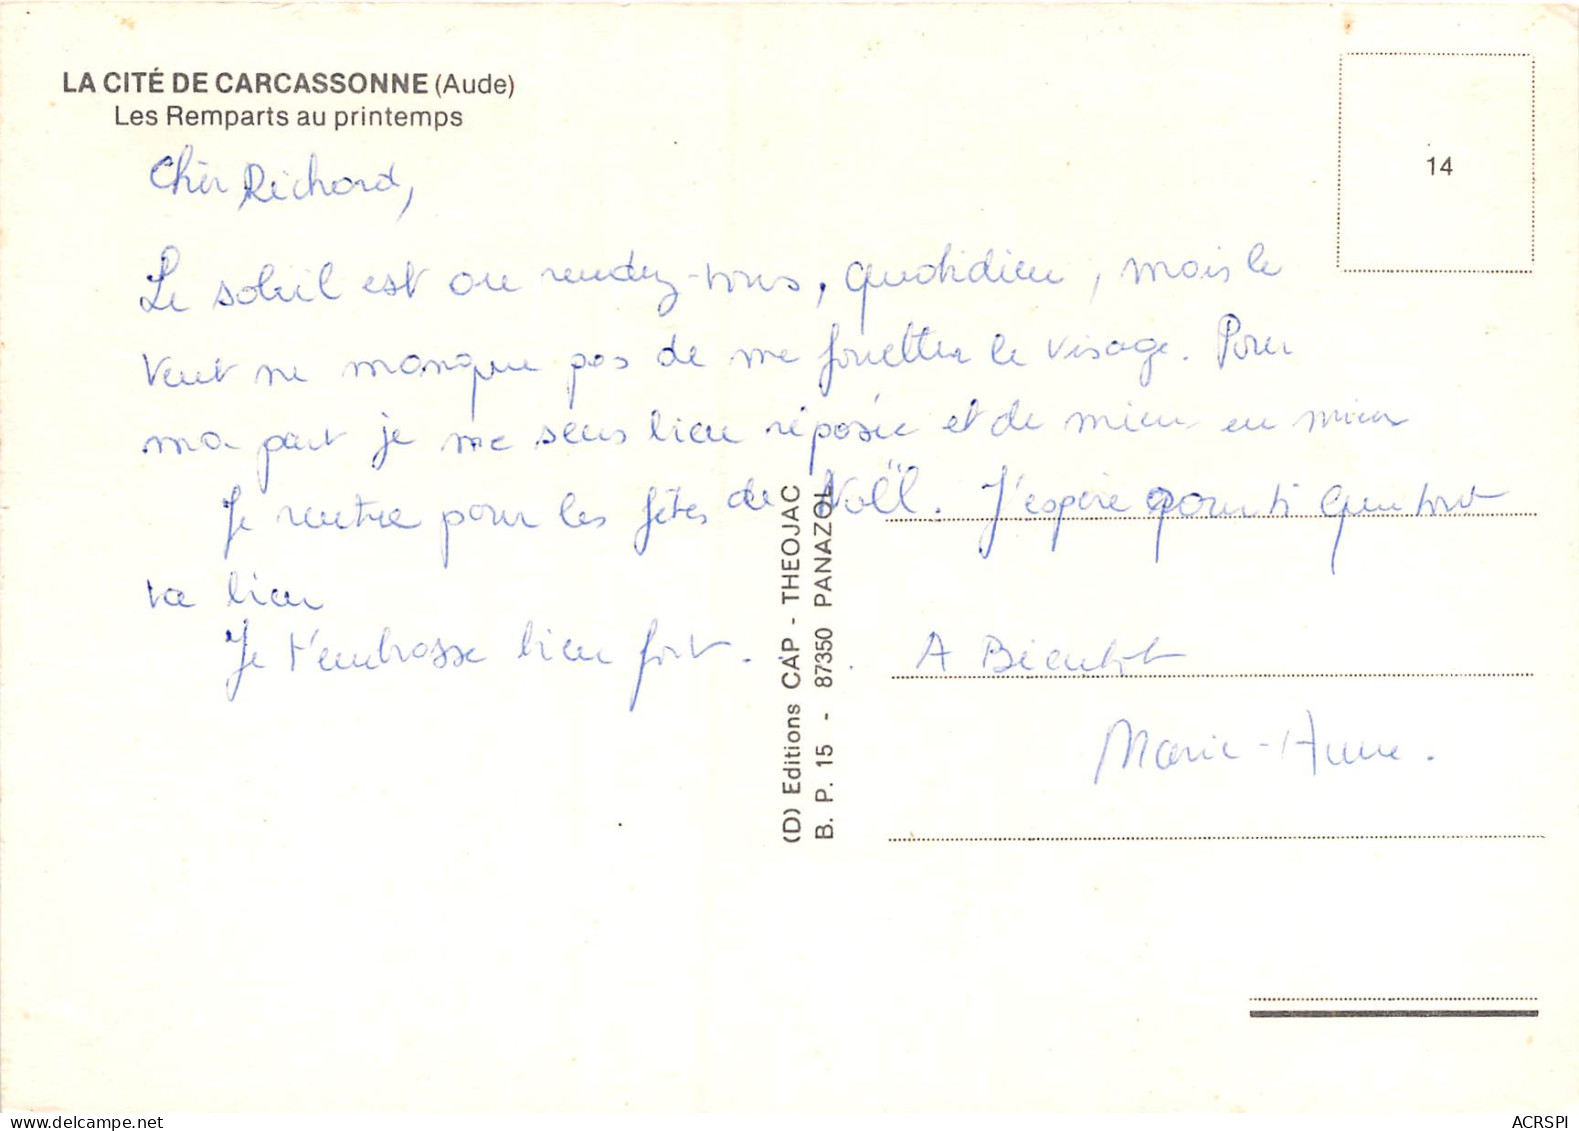 LA CITÉ DE CARCASSONNE (Aude)
Les Remparts au printemps
14
Cher Richard,
Le soleil est au rendez-vous, quotidien, mais le
vent ne manque pas de me fouetter le visage. Pour
ma part je me sens bien réposée et de mieux en mieux
Je rentre pour les fêtes de Noël. J'espère pour ti que tout
va bien
Je t'embrasse bien fort.
A Bientôt
Marie-Anne.
(D) Editions CAP - THEOJAC
B. P. 15 - 87350 PANAZOL
ACRSPI